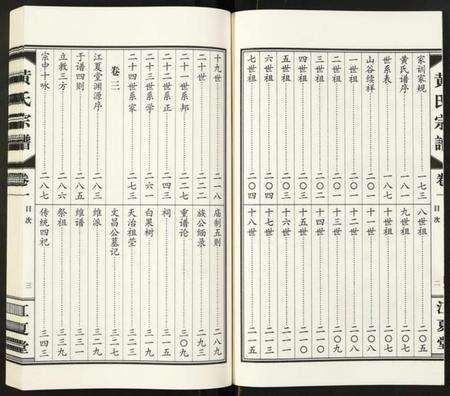 黄氏宗谱
卷一
目次
二
江夏堂
家训家规 一七三
黄氏谱序
世系表 一八七
山谷续祥
一世祖 二〇一
二世祖 二〇二
三世祖 二〇二
四世祖 二〇三
五世祖 二〇三
六世祖 二〇四
七世祖 二〇四
八世祖 二〇五
九世祖 二〇七
十世祖 二〇八
十一世 二〇八
十二世 二〇九
十三世
十四世 二一〇
十五世
十六世
十七世 二一四
十八世 二一五
十九世 二一八
二十世 二二二
二十一世系邦 二二七
二十二世系正 二四三
二十三世系学 二六一
二十四世系家 二七三
卷三
江夏堂渊源序 二八三
于谱四则 二八五
立教三方 二八六
宗中十咏 二八七
庙制五则 二八九
族公缅录 二九三
重谱论 三〇九
祠 三一五
白果树 三一九
天治祖茔
文昌公墓记 三二七
维派 三二九
维谱
祭祖 三三九
传统四祀 三四三
黄氏宗谱
卷一
目次
三
江夏堂